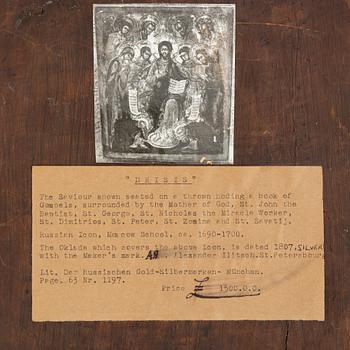 " D E I S I S "
The Saviour shown seated on a throne hoding a book of
Gospels, surrounded by the Mother of God, St. John the
Baptist, St. George, St. Nicholas the Miracle Worker,
St. Dimitrios, St. Peter, St. Zosima and St. Savatij.
Russian Icon, Moscow School, ca. 1690-1700.
The Oklade which covers the above Icon, is dated 1807, SILVER
with the Maker's mark. Alexander Ilitsch.St.Petersbourg
Lit. Der Russischen Gold-Silbermarken- Munchan.
Page. 63 Nr. 1197.
Price £ 1500.0.0.